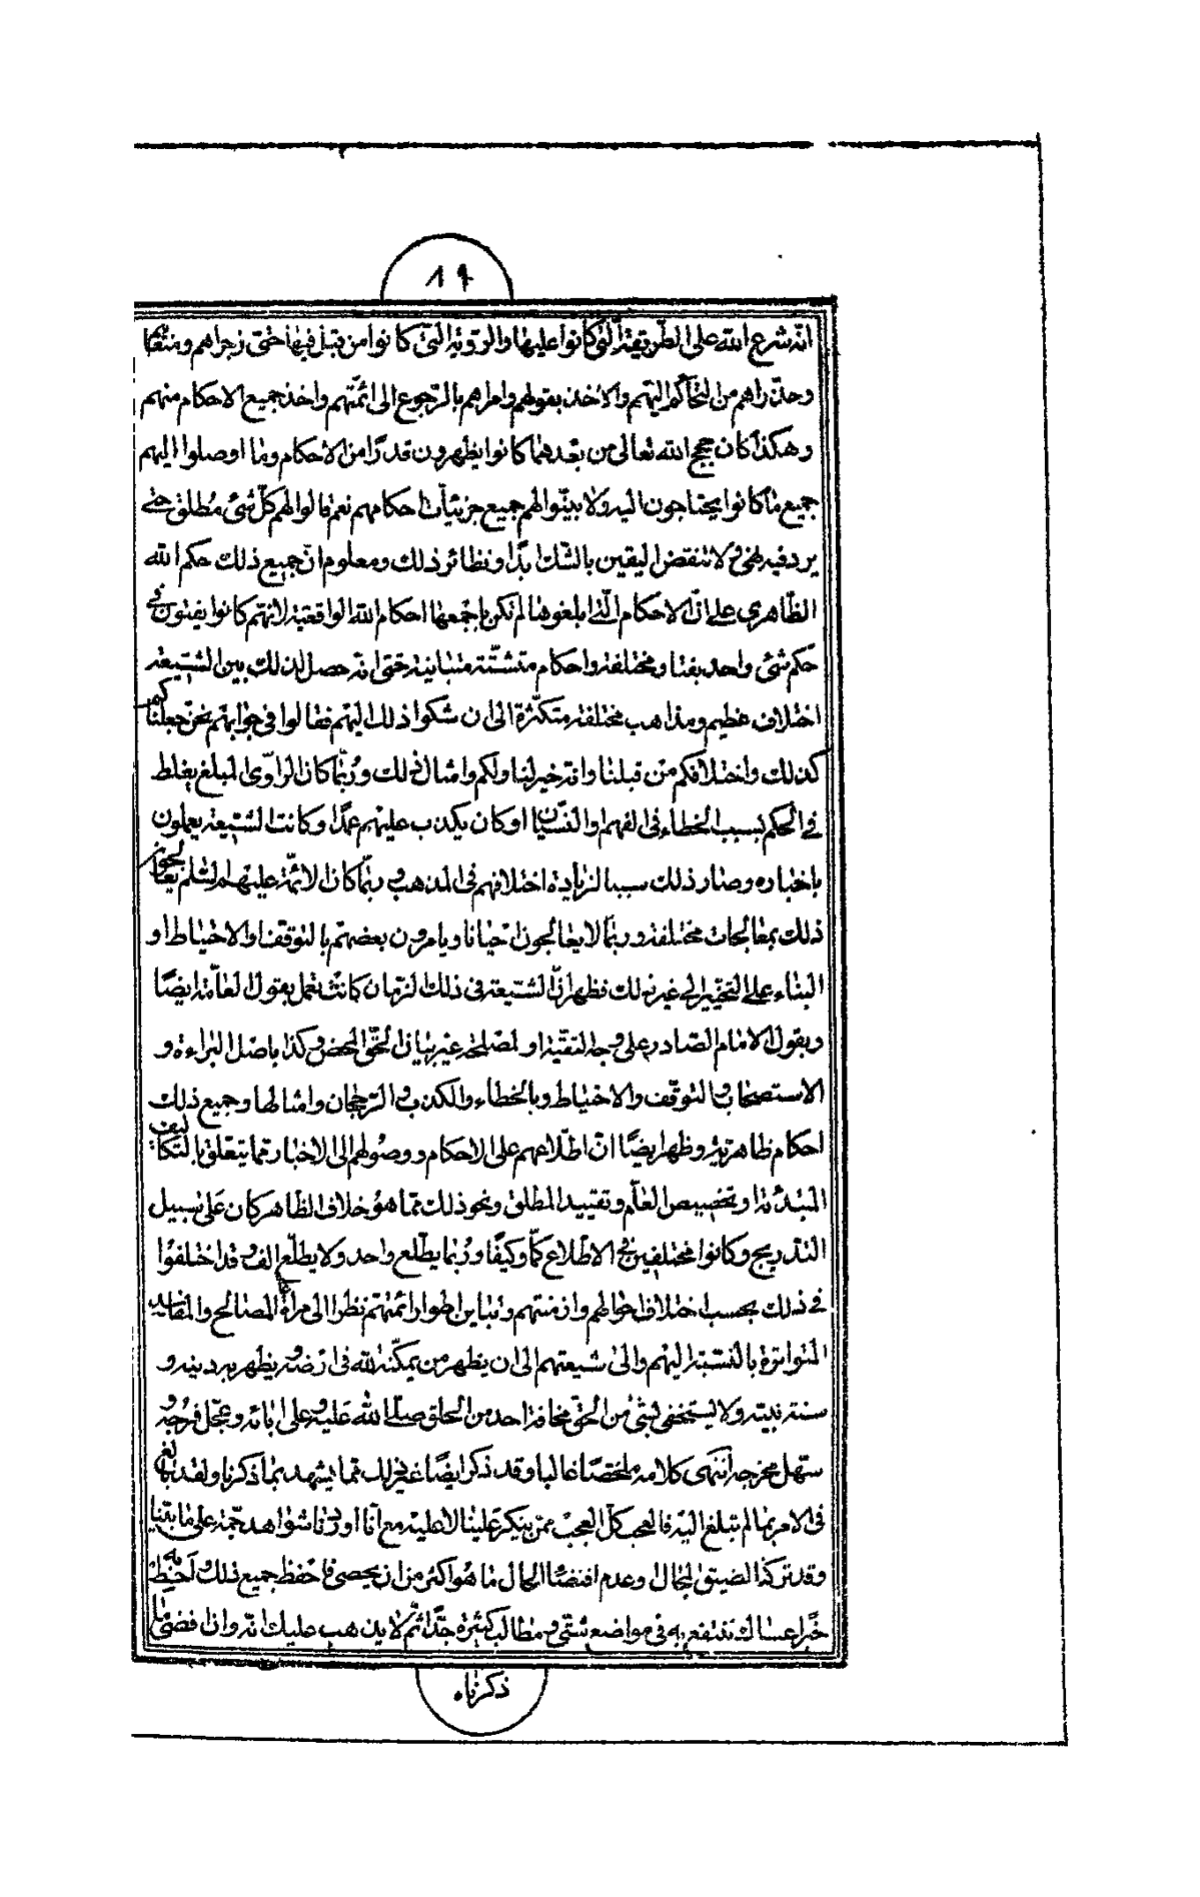 ١٩
انّه شرع الله على الطّريقة الّتى كانوا عليها والرّويّة الّتى كانوا من قبل فيها حتّى زجراهم ومنعا
وحذّراهم من التّحاكم اليهم والاخذ بقولهم وامراهم بالرّجوع الى ائمّتهم واخذ جميع الاحكام منهم
وهكذا كان حجج الله تعالى من بعدهما كانوا يظهرون قدرًا من الاحكام وما اوصلوا اليهم
جميع ما كانوا يحتاجون اليه ولا بيّنوا لهم جميع جزئيّات احكامهم نعم قالوا لهم كلّ شئ مُطلق حتى
يرد فيه نهى ولا تنقض اليقين بالشّك ابدًا ونظائر ذلك ومعلوم انّ جميع ذلك حكم الله
الظّاهرى على انّ الاحكام الّتى ابلغوها لم تكن باجمعها احكام الله الواقعيّة لانّهم كانوا يفتون فى
حكم شئ واحد بفتاوى مختلفة واحكام متشتّتة متبانية حتى انّه حصل لذلك بين الشّيعة
اختلاف عظيم ومذاهب مختلفة متكثّرة الى ان شكوا ذلك اليهم فقالوا فى جوابهم نحن جعلناكم
كذلك واختلافكم من قبلنا وانّه خير لنا ولكم وامثال ذلك ورُبّما كان الرّاوى المبلغ يغلط
فى الحكم بسبب الخطاء فى الفهم او النّسيان او كان يكذب عليهم عمدًا وكانت الشّيعة يعملون
باخباره وصار ذلك سببا لزيادة اختلافهم فى المذهب وربّما كان الائمّة عليهم السّلم يعالجون
ذلك بمعالجات مختلفة وربّما لا يعالجون احيانا ويامرون بعضهم بالتوقف او الاحتياط او
البناء على التخيير الى غير ذلك فظهر انّ الشّيعة فى ذلك الزمان كانت تعمل بقول العامّة ايضًا
وبقول الامام الصّادر على وجه التقيّة او لمصلحة غير بيان الحقّ المحض وكذا باصل البراءة و
الاستصحاب والتوقّف والاحتياط وبالخطاء والكذب والرّجحان وامثالها وجميع ذلك
احكام ظاهريّة وظهر ايضًا انّ اطّلاعهم على الاحكام ووصُولهم الى الاخبار ممّا يتعلّق بالتكاليف
المبتدئة او تخصيص العامّ وتقييد المطلق ونحو ذلك ممّا هو خلاف الظاهر كان على سبيل
التدريج وكانوا مختلفين فى الاطّلاع كمّا وكيفًا ورُبّما يطّلع واحد ولا يطلّع الف وقد اختلفوا
فى ذلك بحسب اختلاف احوالهم وازمنتهم وتباين اطوار ائمّتهم نظرا الى مراعاة المصالح والمفاسد
المتواترة بالنّسبة اليهم والى شيعتهم الى ان يظهر من يمكّنه الله فى ارضه ويظهر به دينه و
سنة نبيّه ولا يستخفى بشئ من الحقّ مخافة احد من الخلق صلّى الله عليه وعلى ابائه وعجّل فرجه و
سهّل مخرجه انتهى كلامه ملخّصًا غالبا وقد ذكر ايضًا غير ذلك ممّا يشهد بما ذكرنا ولقد بالغ
فى الامر بما لم تبلغ اليه فالعجب كلّ العجب ممّن ينكر علينا لا عليه مع انّا اوردنا شواهد جمّة على ما بيّنا
وقد تركنا لضيق المجال وعدم اقتضاء الحال ما هو اكثر من ان يحصى فاحفظ جميع ذلك احط به
خبرا عساك تنتفع به فى مواضع شتّى ومطالب كثيرة جدًّا ثم لا يذهب عليك انّه وان اقتضى ما
ذكرناه